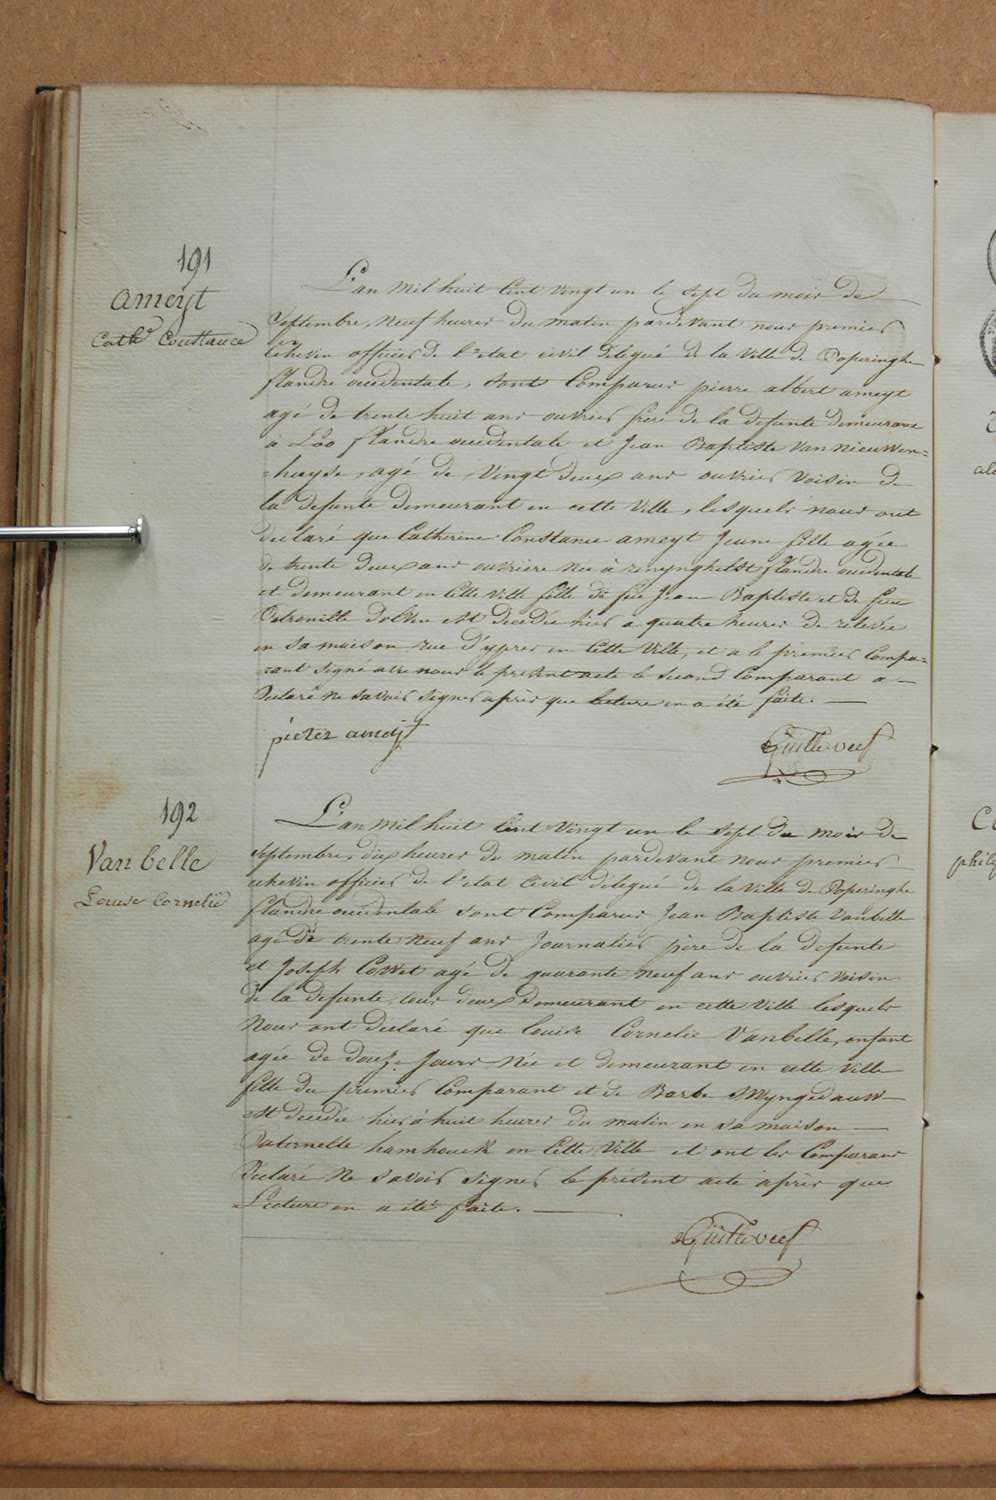 191
ameyt
Cathe Constance
L'an mil huit Cent vingt un le sept du mois de
Septembre, neuf heures du matin pardevant nous premier
Echevin officier de l'etat civil délegué de la ville de Poperinghe
flandre occidentale, sont Comparus pierre albert ameyt
agé de trente huit ans ouvrier frere de la defunte demeurant
à Loo flandre occidentale et Jean Baptiste Van nieuwen=
=huyse, agé de Vingt deux ans ouvrier Voisin de
la defunte demeurant en cette Ville, lesquels nous ont
déclaré que Catherine Constance ameyt Jeune fille agée
de trente deux ans ouvriere née à renynghelst flandre occidentale
et demeurant en Cette ville fille de feu Jean Baptiste et de feue
Petronille est decedée hier a quatre heures de relevée
en sa maison rue d'ypres en Cette Ville, et a le premier Compa=
rant signé avec nous le present acte le second Comparant a
Declaré ne savoir signer après que lecture en a été faite.
pieter ameijt
192
Van belle
Louise Cornelie
L'an mil huit Cent Vingt un le sept du mois de
Septembre, dix heures du matin pardevant nous premier
echevin officier de l'etat Civil délegué de la Ville de Poperinghe
flandre occidentale sont Comparus Jean Baptiste Vanbelle
agé de trente neuf ans Journalier père de la defunte
et Joseph agé de quarante neuf ans ouvrier voisin
de la defunte, tous deux Demeurant en cette Ville lesquels
Nous ont déclaré que louise Cornelie Vanbelle, enfant
agée de douze Jours née et demeurant en cette Ville
fille du premier Comparant et de Barbe Wyngedauw
est decedée hier à huit heures du matin en sa maison
en Cette Ville et ont les Comparans
Declaré Ne savoir signer le présent acte après que
Lecture en a été faite.